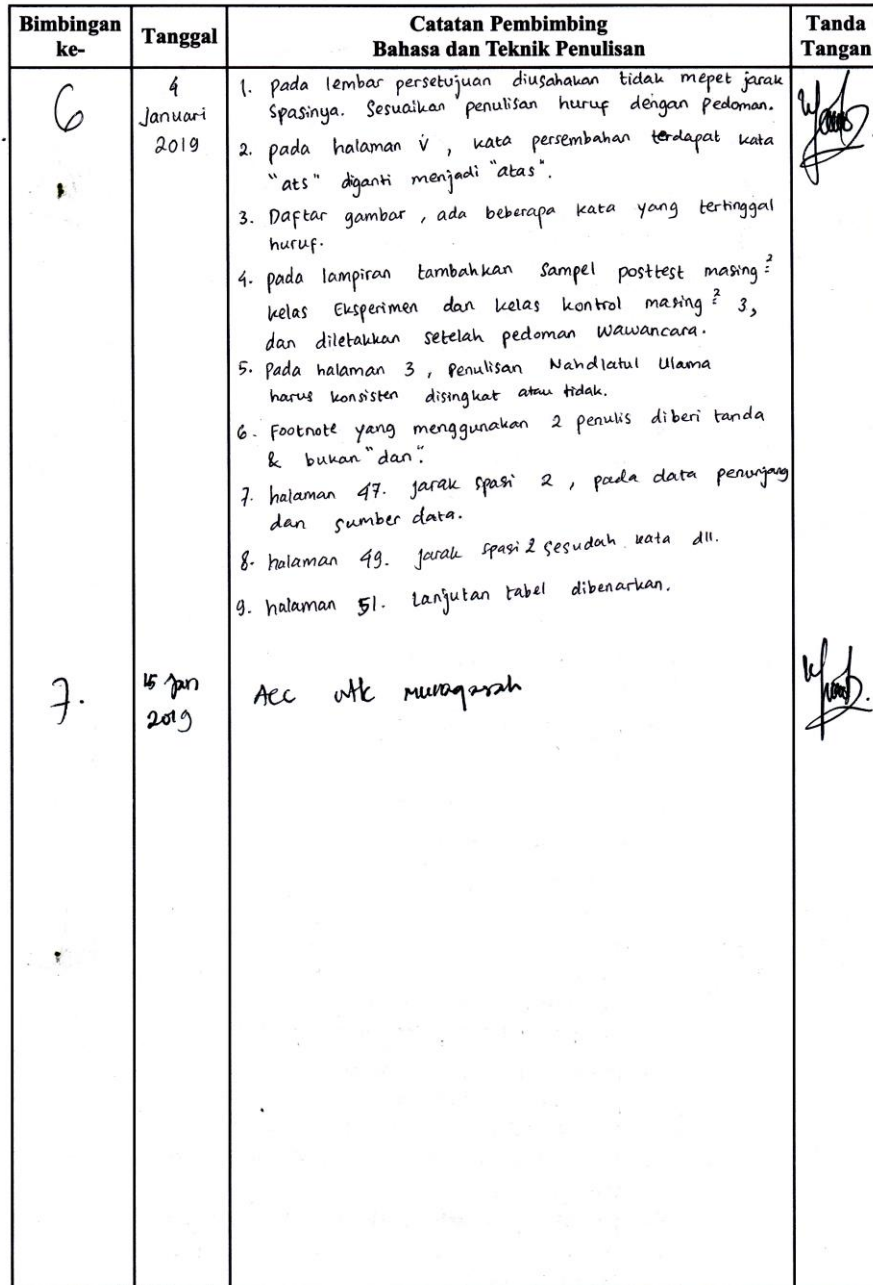 Bimbingan ke-
Tanggal
Catatan Pembimbing
Bahasa dan Teknik Penulisan
Tanda Tangan
6
4 Januari 2019
1. pada lembar persetujuan diusahakan tidak mepet jarak
spasinya. Sesuaikan penulisan huruf dengan pedoman.
2. pada halaman v, kata persembahan terdapat kata
"ats" diganti menjadi "atas".
3. Daftar gambar, ada beberapa kata yang tertinggal
huruf.
4. pada lampiran tambahkan sampel posttest masing²
kelas Eksperimen dan kelas kontrol masing² 3,
dan diletakkan setelah pedoman wawancara.
5. Pada halaman 3, penulisan Nahdlatul Ulama
harus konsisten disingkat atau tidak.
6. Footnote yang menggunakan 2 penulis diberi tanda
& bukan "dan".
7. halaman 47. jarak spasi 2, pada data penunjang
dan sumber data.
8. halaman 49. jarak spasi 2 sesudah kata dll.
9. halaman 51. Lanjutan tabel dibenarkan.
7.
15 Jan 2019
Acc utk munaqasah